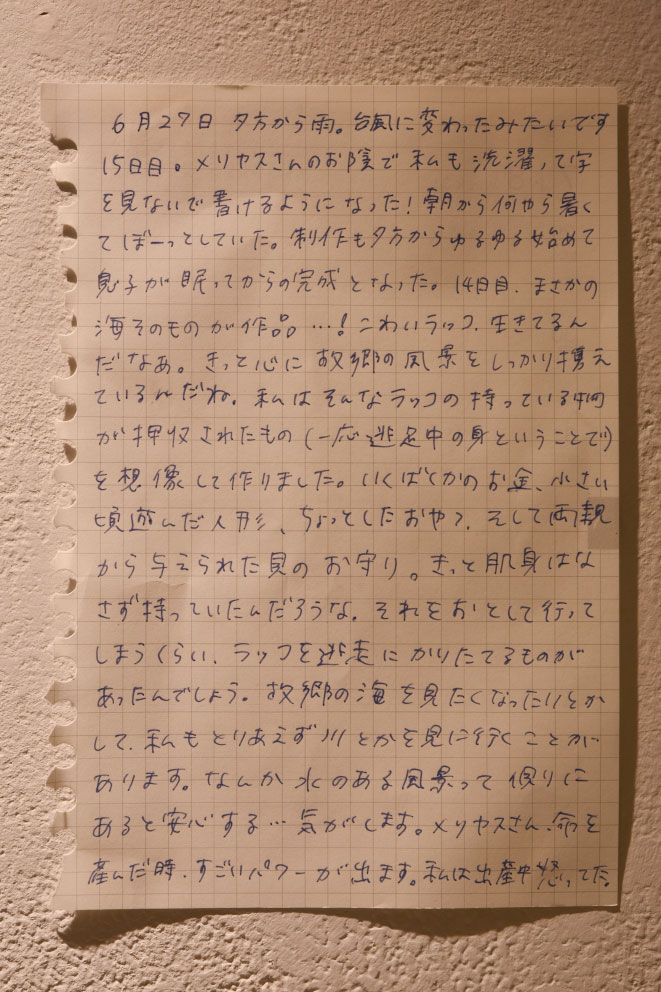 6月27日 夕方から雨。台風に変わったみたいです
15日目。メリヤスさんのお陰で私も洗濯って字
を見ないで書けるようになった!朝から何やら暑く
てぼーっとしていた。制作も夕方からゆるゆる始めて
息子が眠ってからの完成となった。14日目、まさかの
海そのものが作品…!こわいラッコ、生きてるん
だなあ。きっと心に故郷の風景をしっかり携え
ているんだね。私はそんなラッコの持っている何
が押収されたもの(一応逃走中の身ということで)
を想像して作りました。いくばくかのお金、小さい
頃遊んだ人形、ちょっとしたおやつ、そして両親
から与えられた貝のお守り。きっと肌身はな
さず持っていたんだろうな。それをおとして行って
しまうくらい、ラッコを逃走にかりたてるものが
あったんでしょう。故郷の海を見たくなったりとか
して、私もとりあえず川とかを見に行くことが
あります。なんか水のある風景って側に
あると安心する…気がします。メリヤスさん、命を
産んだ時、すごいパワーが出ます。私は出産中怒ってた。